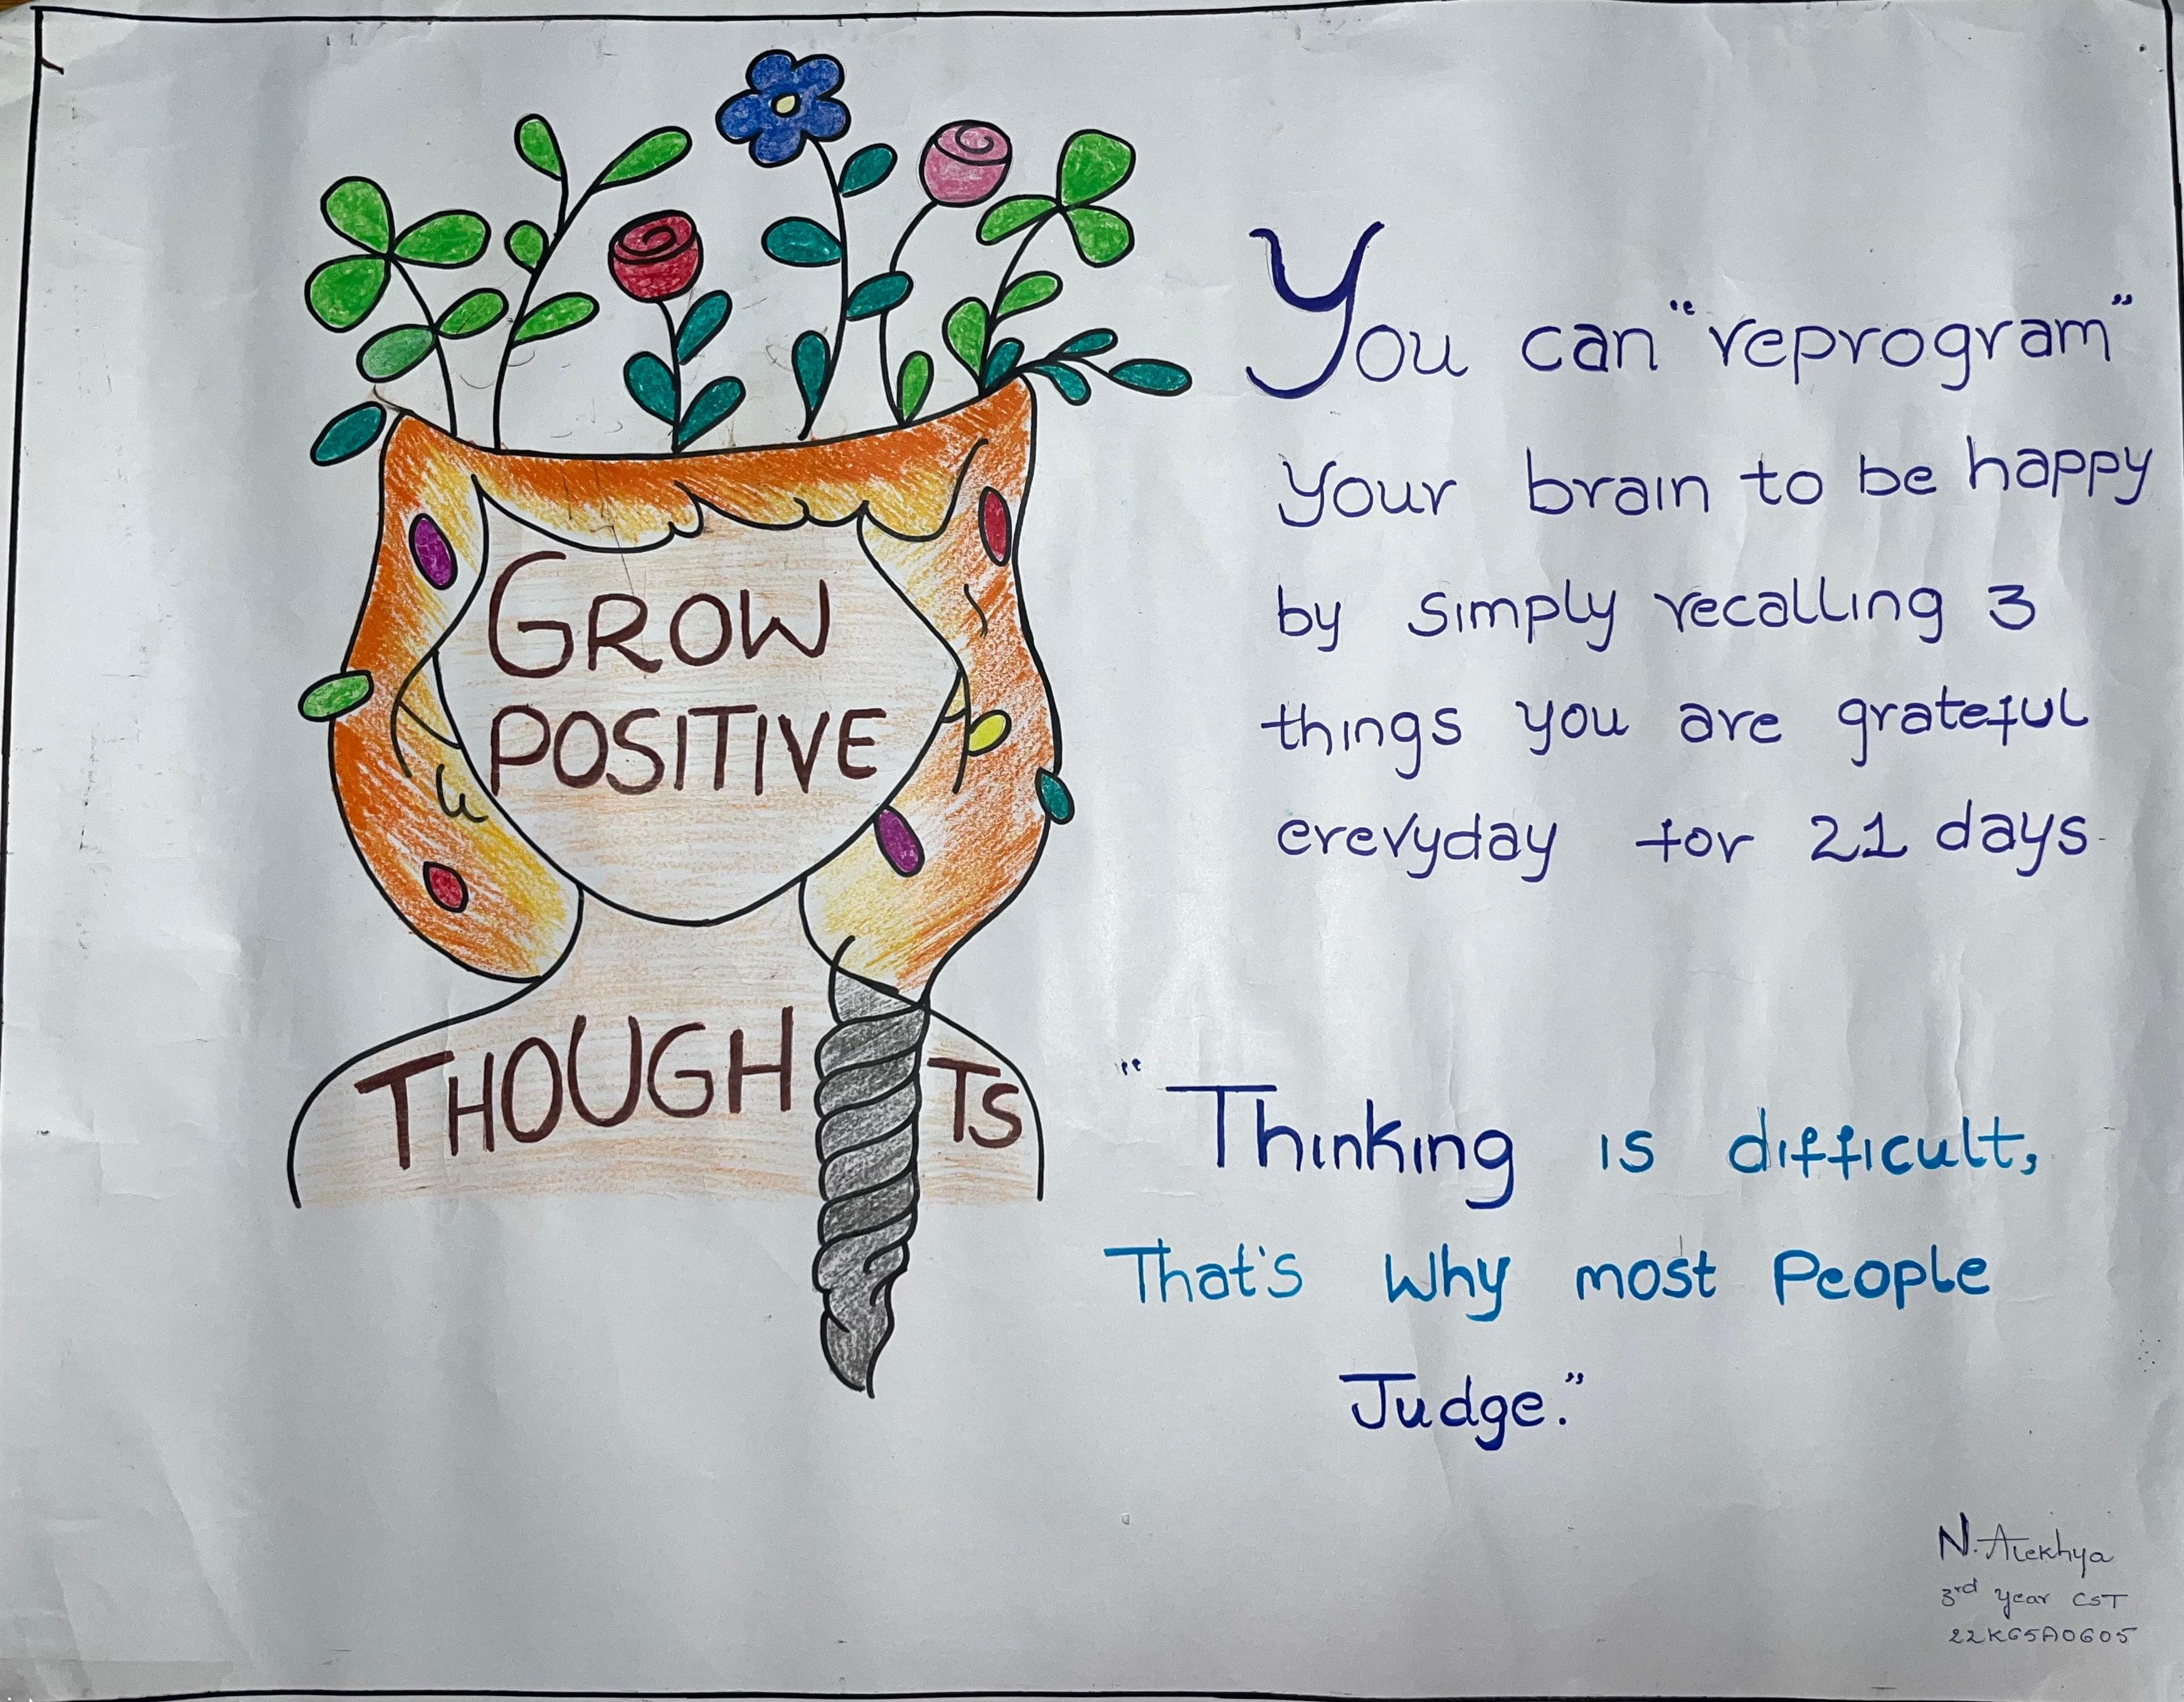 GROW
POSITIVE
THOUGHTS
You can "reprogram"
your brain to be happy
by simply recalling 3
things you are grateful
erevyday for 21 days
"Thinking is difficult,
That's Why most People
Judge."
N. Alekhya
3rd year CST
22KG5A0605